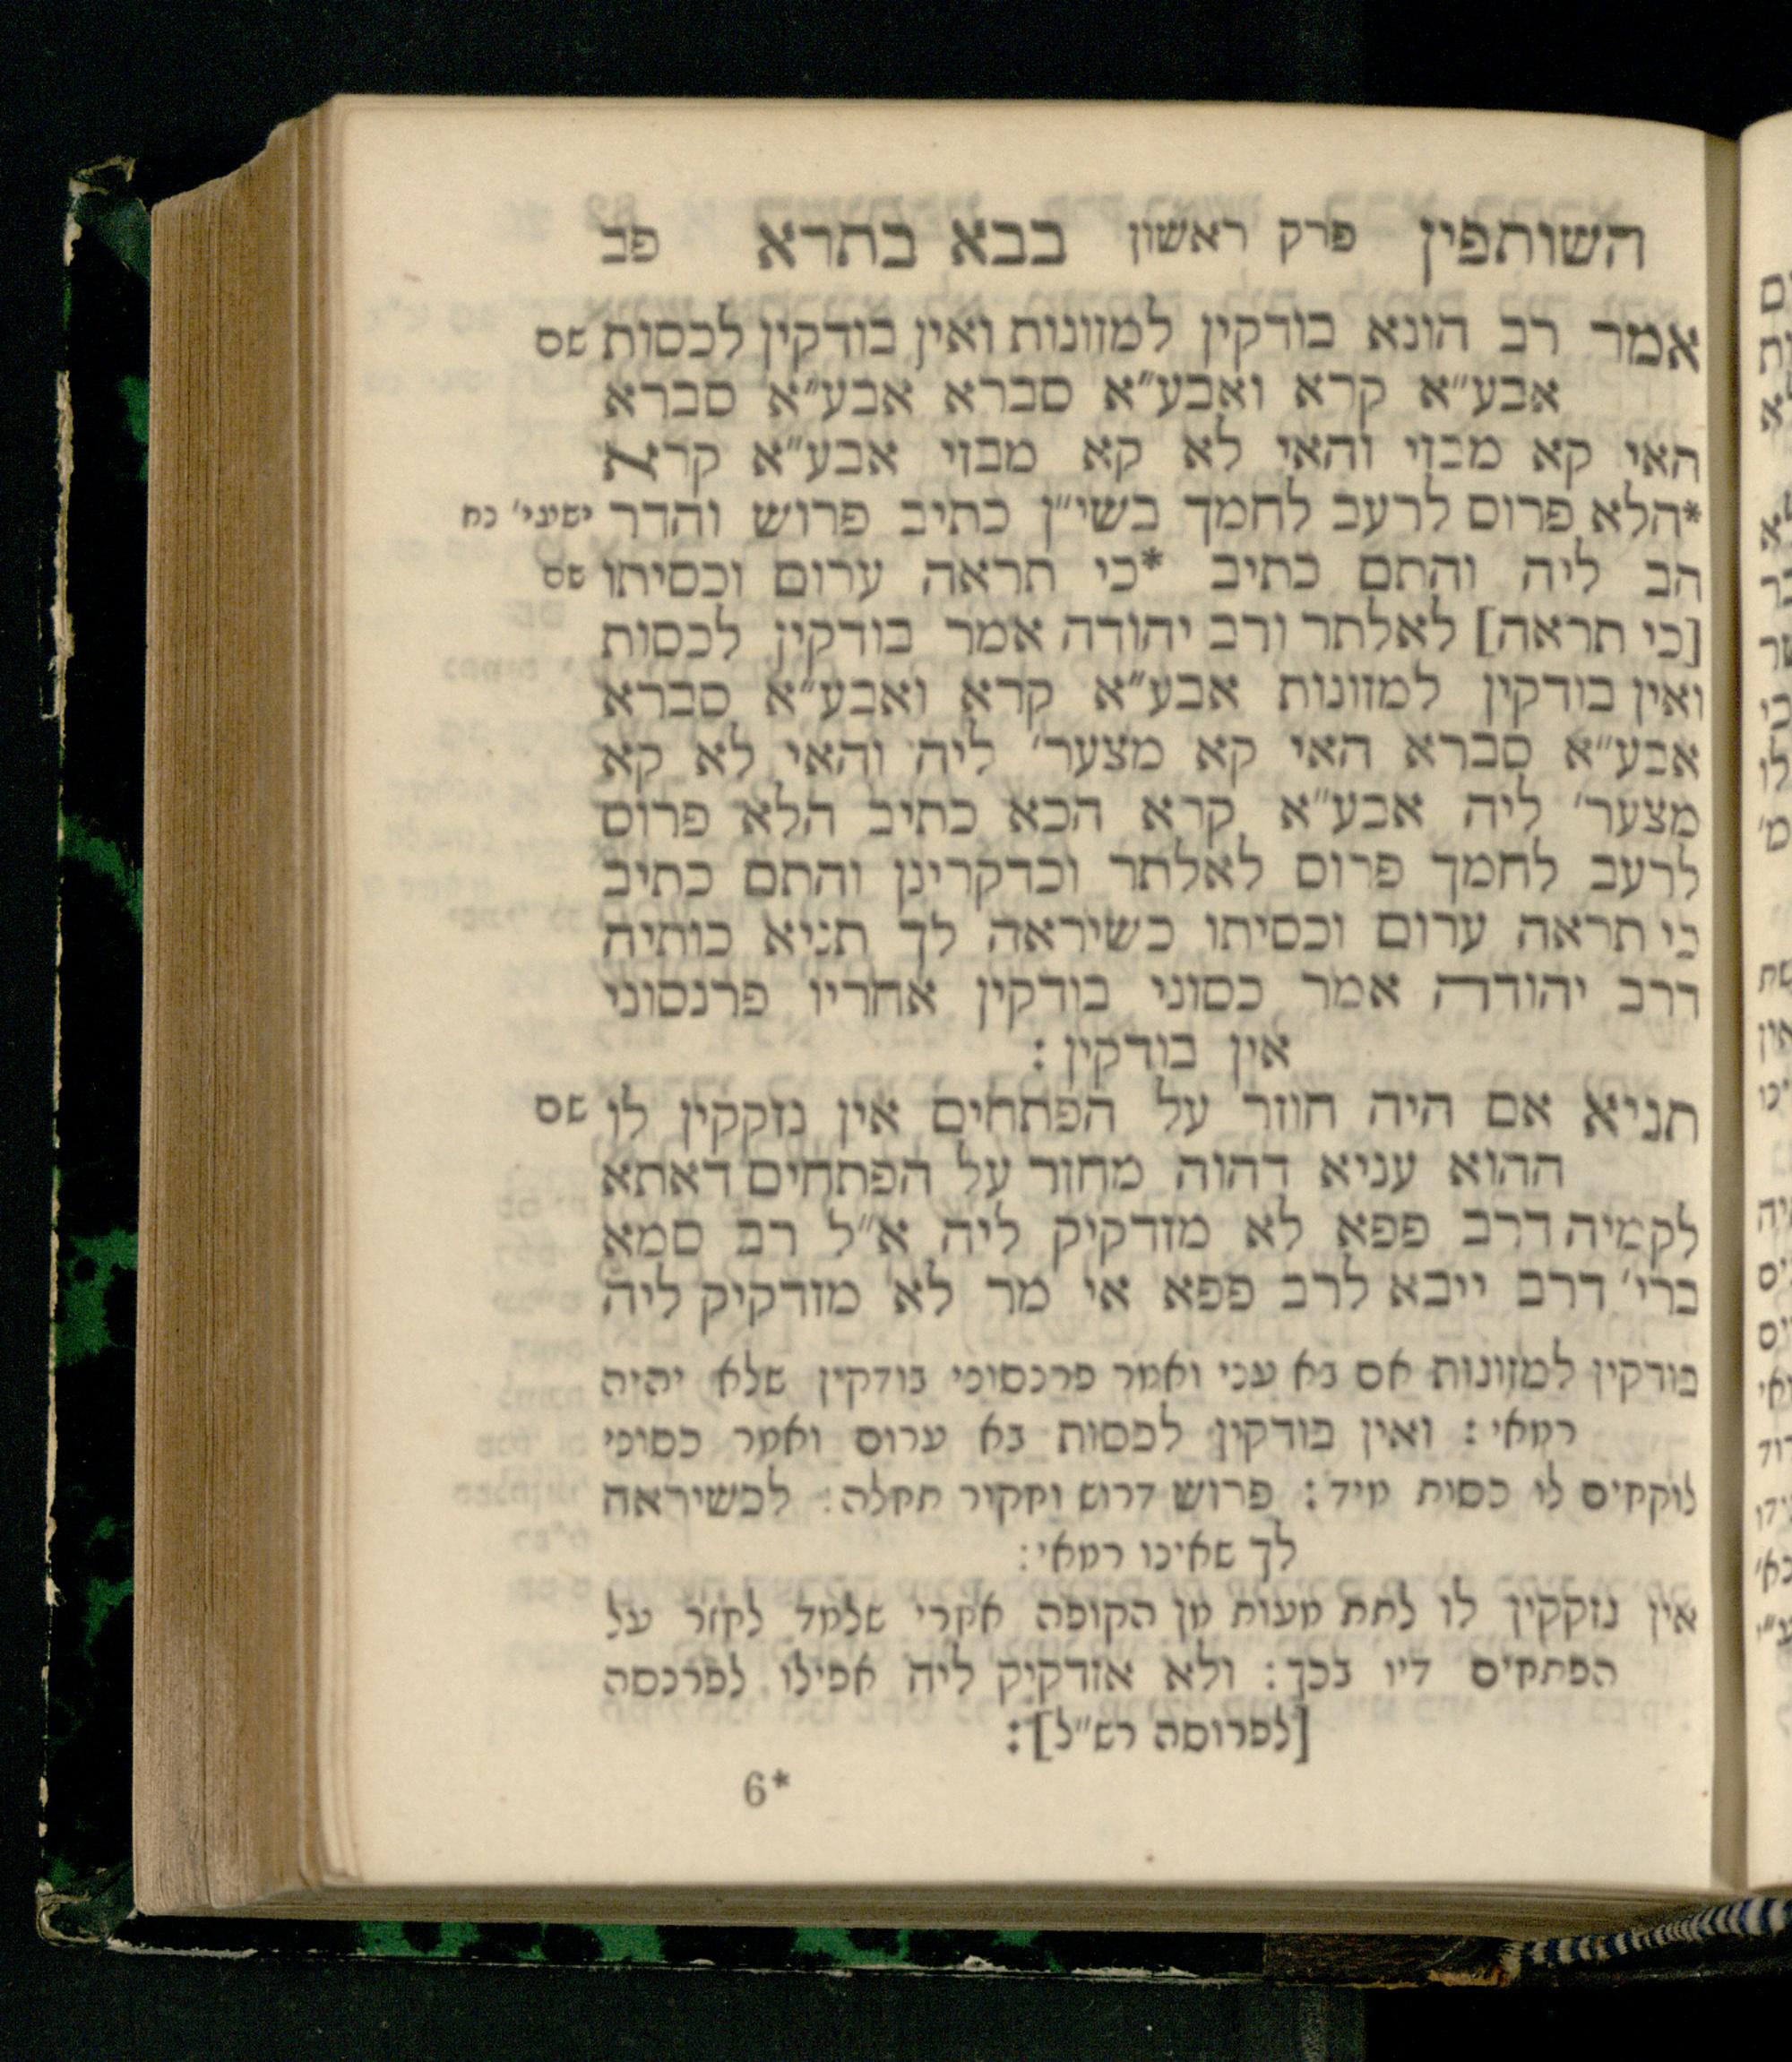 השותפין פרק ראשון בבא בתרא פב
אמר רב הונא בודקין למזונות ואין בודקין לכסות שם
אבע״א קרא ואבע״א סברא אבע״א סברא
האי קא מבזי והאי לא קא מבזי אבע״א קרא
*הלא פרוס לרעב לחמך בשי״ן כתיב פרוש והדר ישעי׳ נח
הב ליה והתם כתיב *כי תראה ערום וכסיתו שם
[כי תראה] לאלתר ורב יהודה אמר בודקין לכסות
ואין בודקין למזונות אבע״א קרא ואבע״א סברא
אבע״א סברא האי קא מצער׳ ליה והאי לא קא
מצער׳ ליה אבע״א קרא הכא כתיב הלא פרוס
לרעב לחמך פרוס לאלתר וכדקרינן והתם כתיב
כי תראה ערום וכסיתו כשיראה לך תניא כותיה
דרב יהודה אמר כסוני בודקין אחריו פרנסוני
אין בודקין :
תניא אם היה חוזר על הפתחים אין נזקקין לו שם
ההוא עניא דהוה מחזר על הפתחים דאתא
לקמיה דרב פפא לא מזדקיק ליה א״ל רב סמא
ברי׳ דרב ייבא לרב פפא אי מר לא מזדקיק ליה
בודקין למזונות אם בא עני ואמר פרנסוני בודקין שלא יהיה
רמאי : ואין בודקין לכסות בא ערום ואמר כסוני
לוקחים לו כסות מיד : פרוש דרוש וחקור תחלה : לכשיראה
לך שאינו רמאי :
אין נזקקין לו לתת מעות מן הקופה אחרי שלמד לחזר על
הפתחים דיו בכך : ולא אזדקיק ליה אפילו לפרנסה
[לפרוסה רש״ל] :
6*